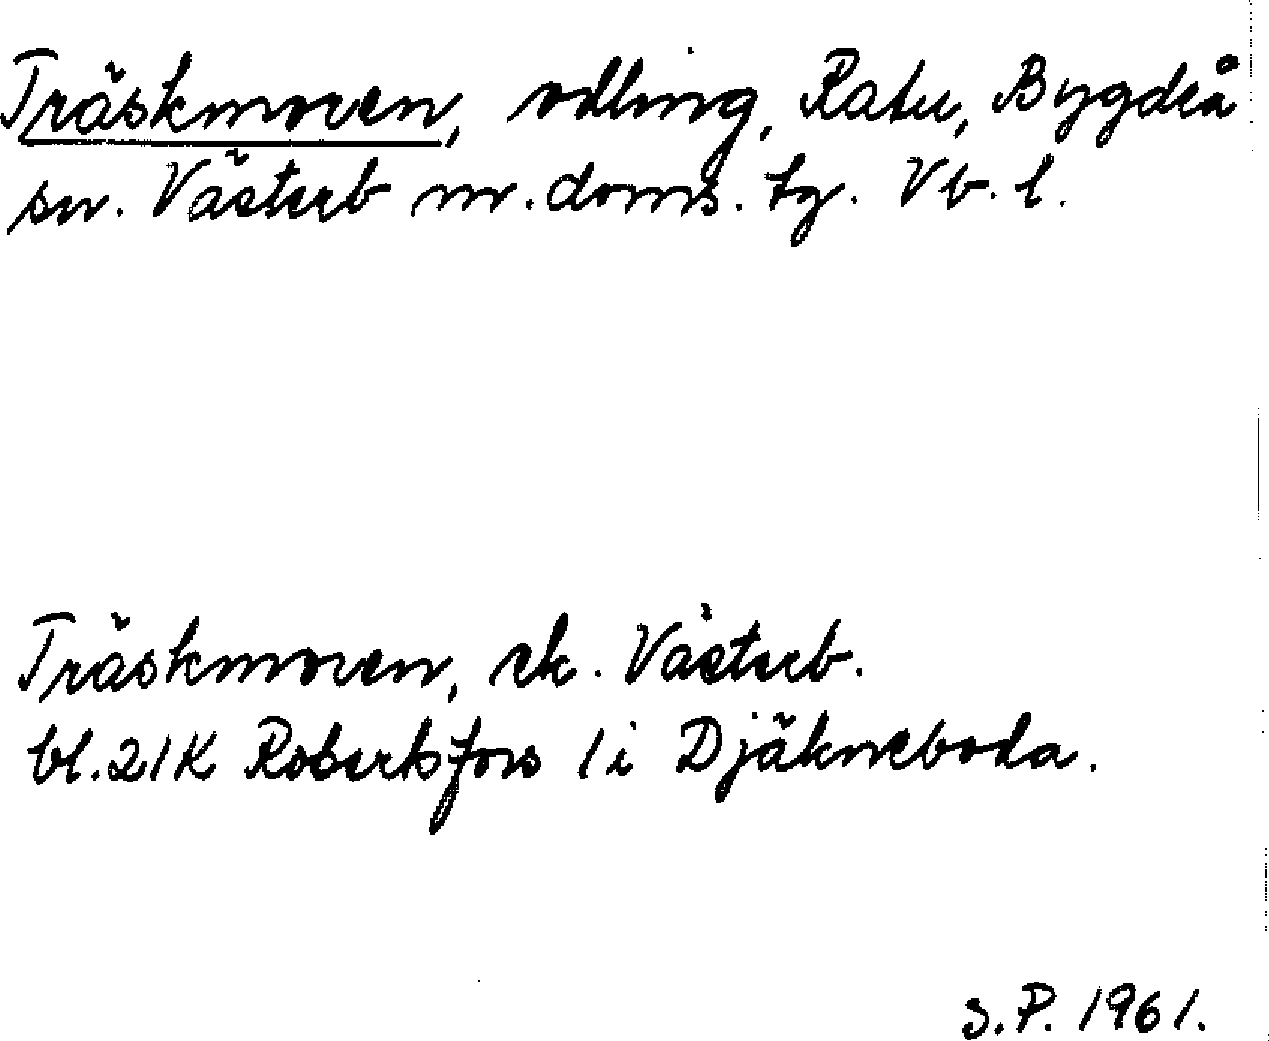 Träskmoren, odling, Ratu, Bygdeå
sn. Västerb n. doms. tg. Vb. l.
Träskmoren, ek. Västerb.
bl. 21K Robertsfors 1i Djäkneboda.
S.P. 1961.